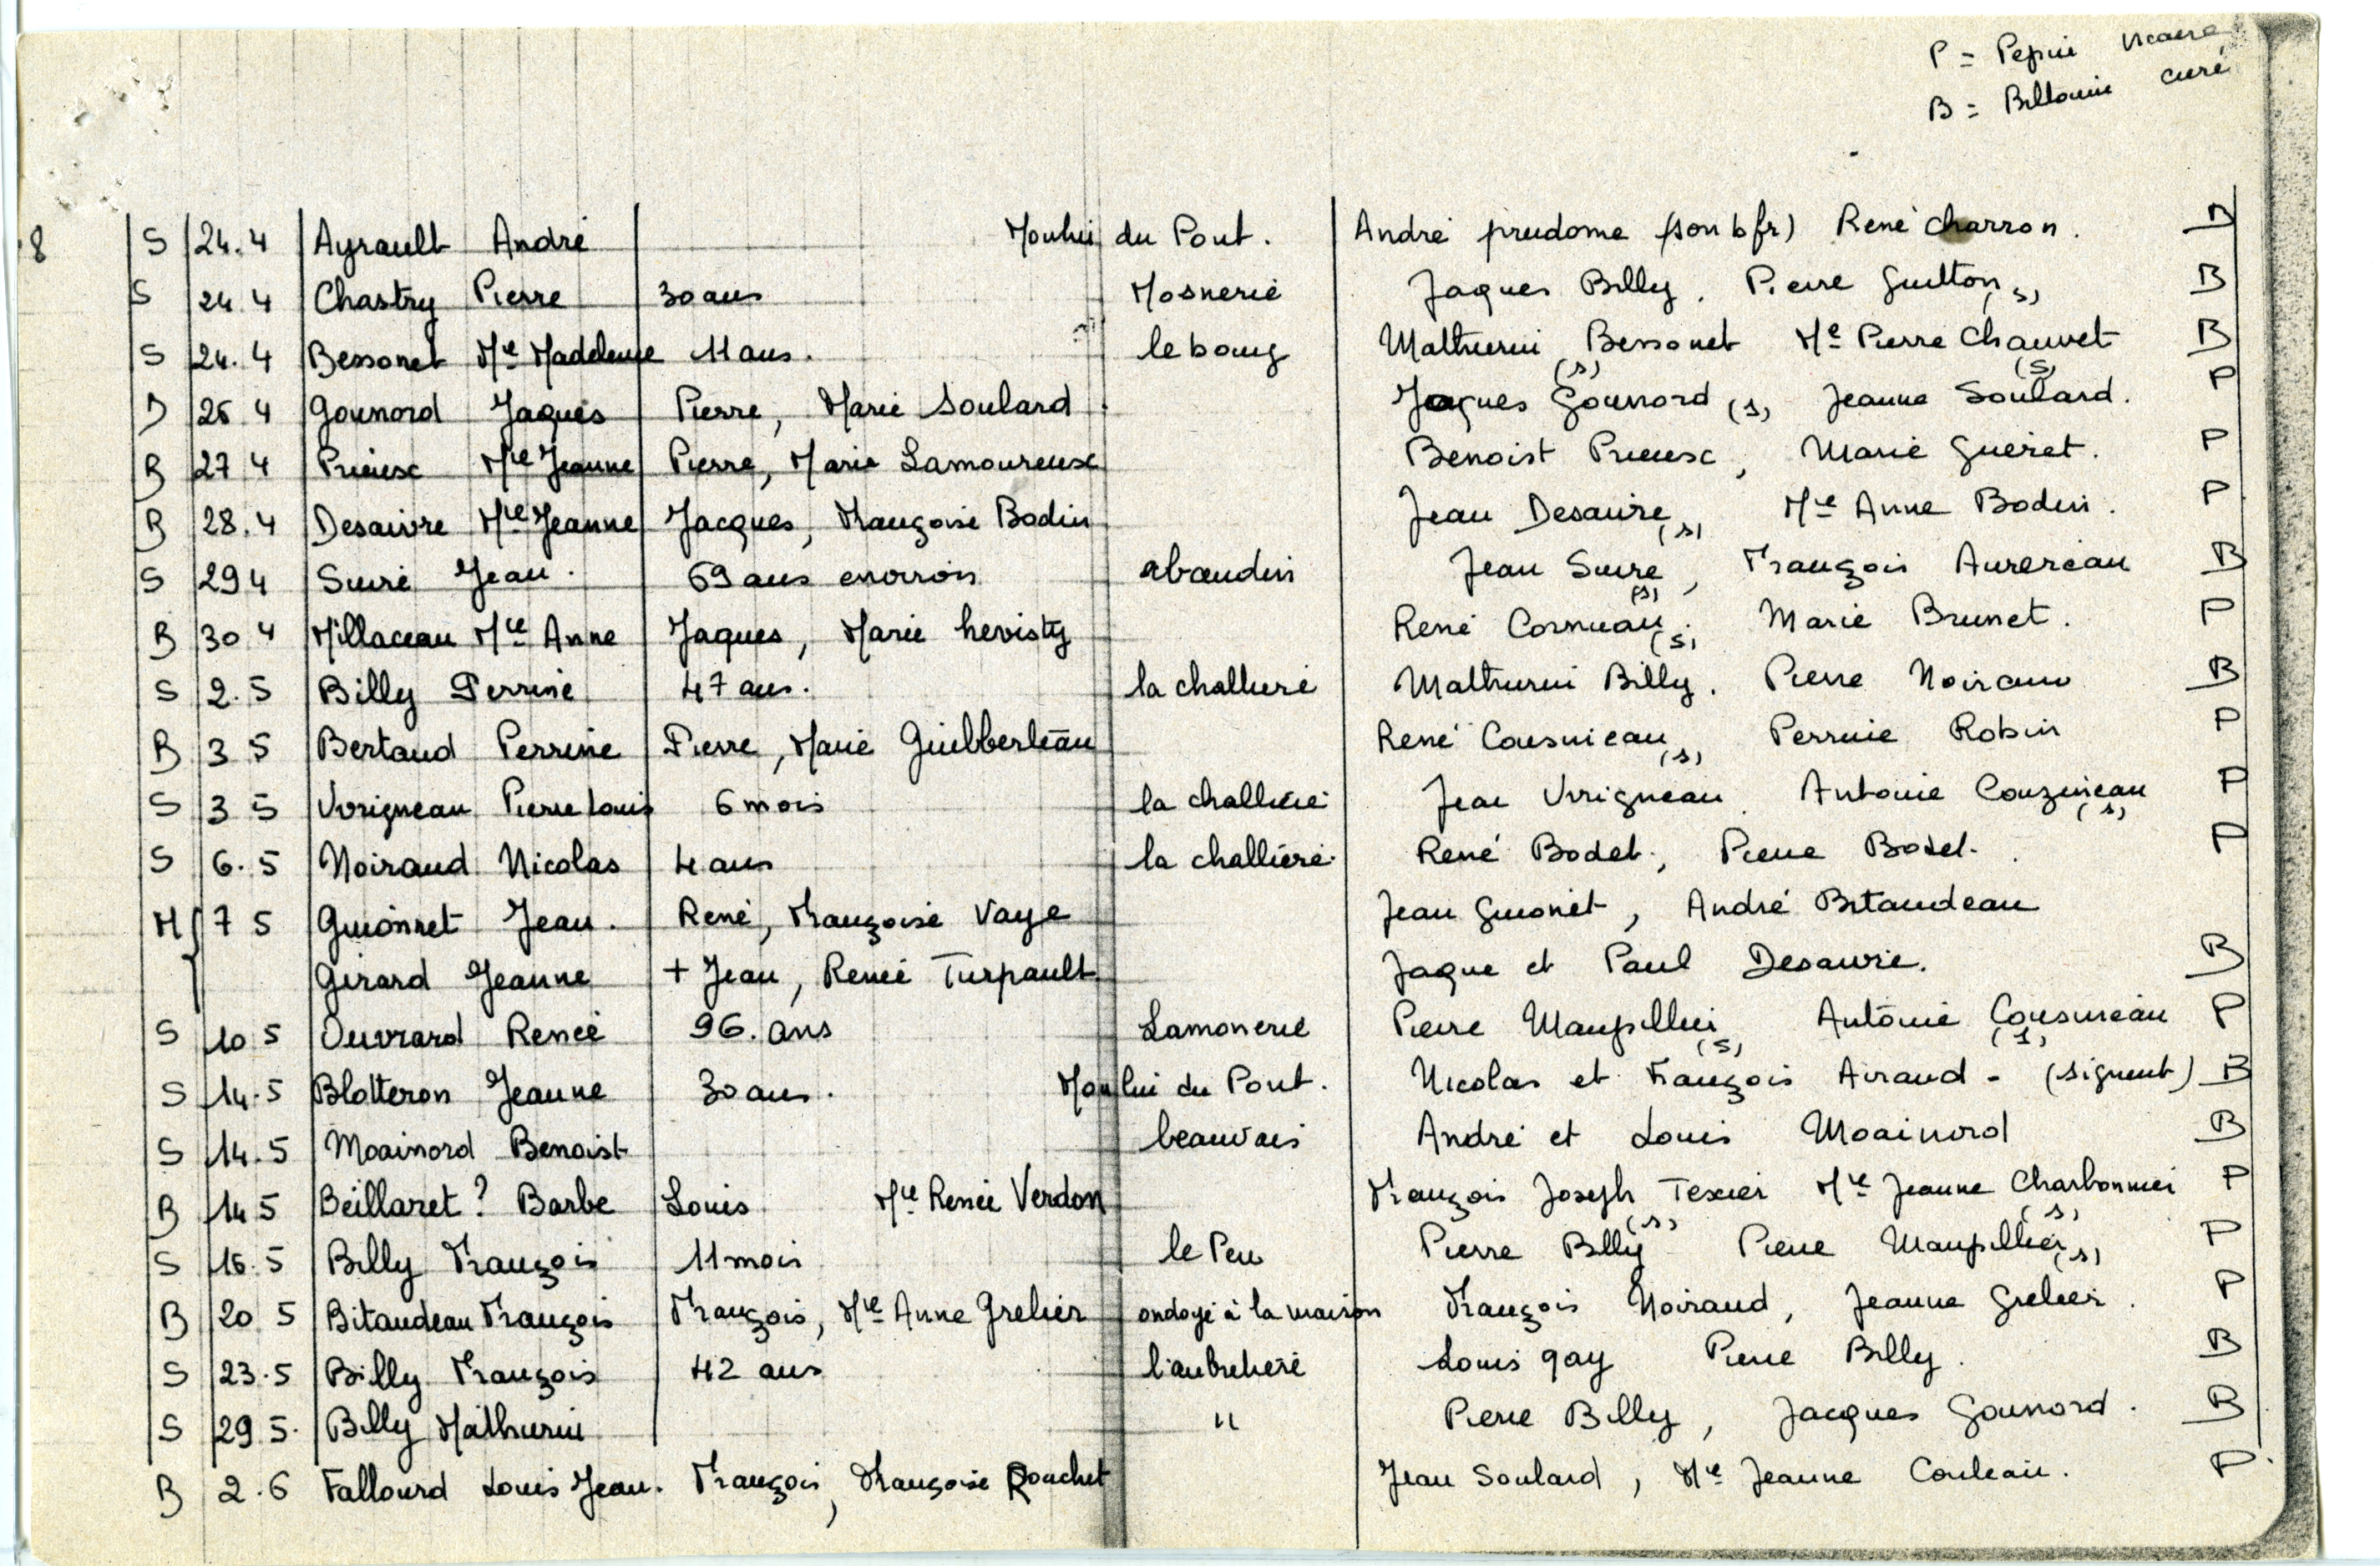 P = Pepin vicaire
B = Billouin curé
8 S 24.4 Ayrault André Moulin du Pont. André prudome (son b fr) René charron. B
S 24 4 Chastry Pierre 30 ans Mosnerie Jaques Billy. Pierre Guitton (s) B
S 24.4 Bessonet Mie Madeleine 11 ans. le bourg Mathurin Bessonet (s) Me Pierre Chauvet (s) B
26 4 Gounord Jaques Pierre, Marie Soulard Jaques Gounord (s) Jeanne Soulard. P
B 27 4 Prieux Mie Jeanne Pierre, Marie Lamoureux Benoist Prieux, Marie Guéret. P
B 28.4 Desaivre Mie Jeanne Jacques, Françoise Bodin Jean Desaivre (s) Mie Anne Bodin. P
S 29 4 Suire Jean. 69 ans environ abaudin Jean Suire (s), François Aurereau B
B 30 4 Millaceau Mie Anne Jaques, Marie hevisty René Cornuau (s). Marie Brunet. P
S 2.5 Billy Perrine 47 ans. la challiere Mathurin Billy. Pierre Noiraud B
B 3 5 Bertaud Perrine Pierre, Marie Guilberteau René Cousnieau (s) Perrine Robin P
S 3 5 Vrigneau Pierre Louis 6 mois la challiere Jean Vrigneau Antoine Couzineau (s) P
S 6.5 Noiraud Nicolas 4 ans la challiere. René Bodet, Pierre Bodet. P
M { 7 5 Guionnet Jean. René, Françoise Vaye Jean Guionet, André Bitaudeau
Girard Jeanne + Jean, Renée Turpault Jaque et Paul Desaivre. B
S 10 5 Ouvrard Renée 96. ans Lamonerie Pierre Maupillier (s) Antoine Cousineau (s) P
S 14.5 Blotteron Jeanne 30 ans. Moulin du Pont. Nicolas et François Airaud - (signent) B
S 14.5 Moainord Benoist beauvais André et Louis Moainord B
B 14 5 Beillaret ? Barbe Louis Mie Renée Verdon François Joseph Texier (s) Mie Jeanne Charbonnier (s) P
S 16.5 Billy François 11 mois le Peu Pierre Billy Pierre Maupillier (s) P
B 20 5 Bitaudeau François François, Mie Anne Grelier ondoyé à la maison François Noiraud, Jeanne Grelier. P
S 23.5 Billy François 42 ans l'aubrehere Louis gay Pierre Billy. B
S 29 5. Billy Mathurin " Pierre Billy, Jacques Gounord. B
B 2.6 Fallourd Louis Jean. François, Françoise Rouchet Jean Soulard, Mie Jeanne Couleau. P.